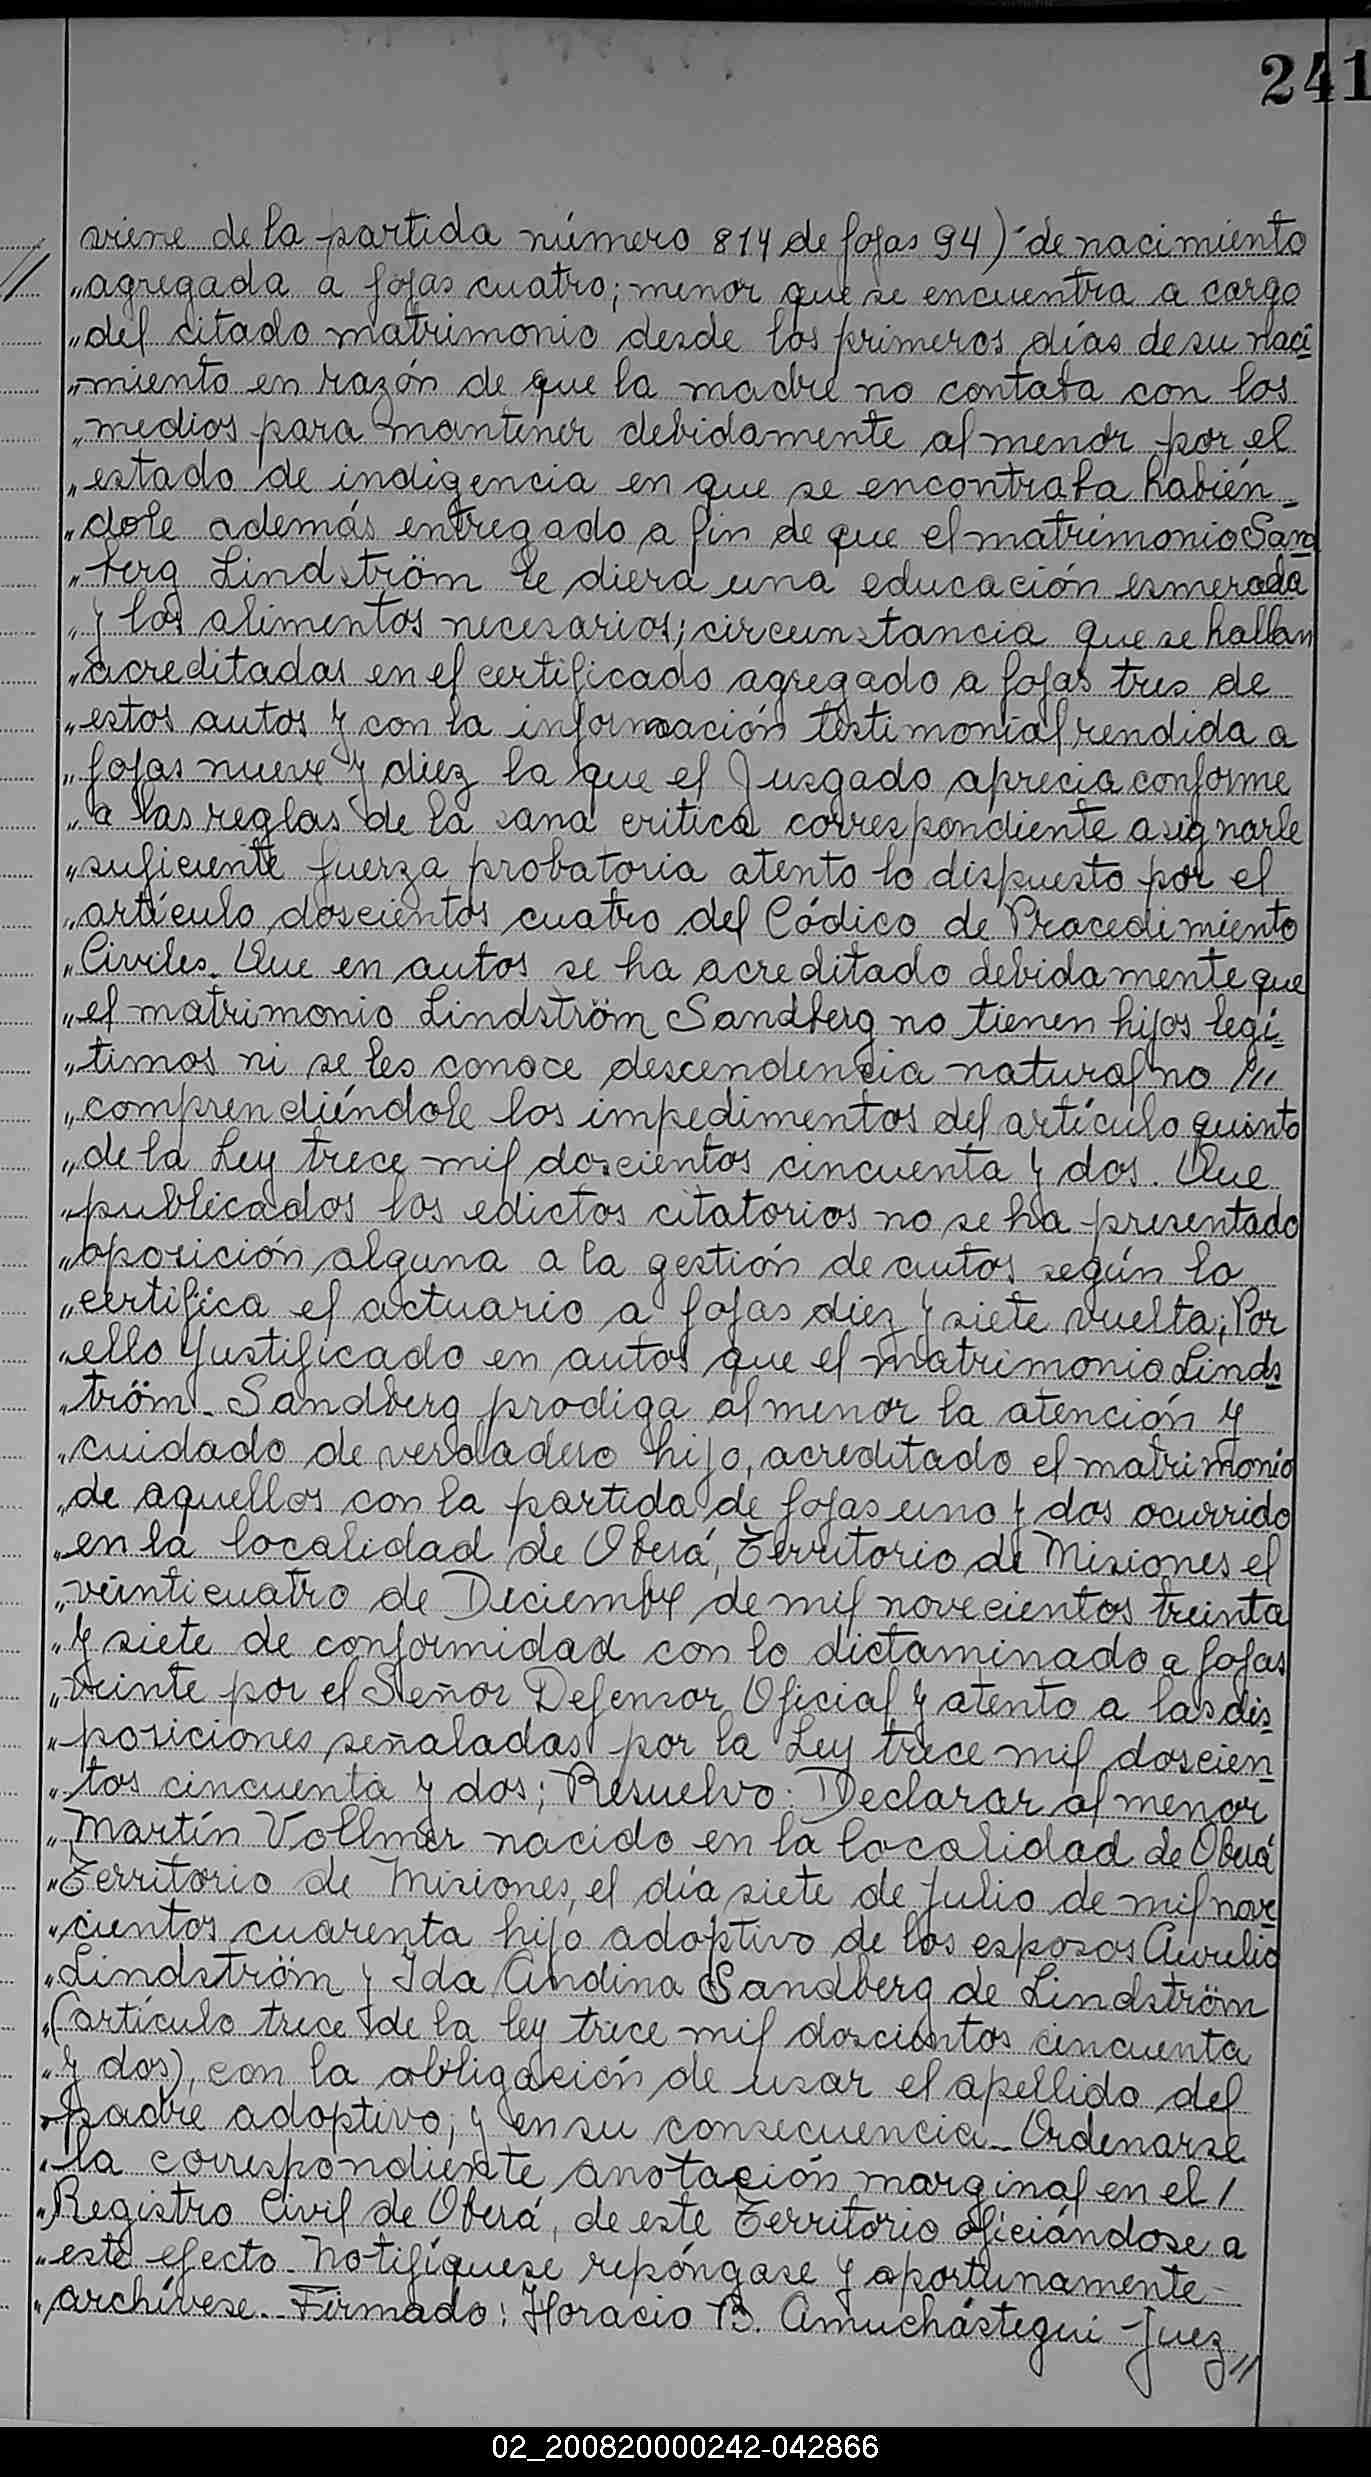 241
viene de la partida número 814 de fojas 94) de nacimiento
// „agregada a fojas cuatro; menor que se encuentra a cargo
„del citado matrimonio desde los primeros días de su naci_
„miento en razón de que la madre no contaba con los
„medios para mantener debidamente al menor por el
„estado de indigencia en que se encontraba habién_
„dole además entregado a fin de que el matrimonio Sand
„berg Lindström le diera una educación esmerada
„y los alimentos necesarios; circunstancia que se hallan
„acreditadas en el certificado agregado a fojas tres de
„estos autos y con la información testimonial rendida a
„fojas nueve y diez la que el Juzgado aprecia conforme
„a las reglas de la sana critica correspondiente asignarle
„suficiente fuerza probatoria atento lo dispuesto por el
„artículo doscientos cuatro del Códico de Procedimiento
„Civiles. Que en autos se ha acreditado debidamente que
„el matrimonio Lindström Sandberg no tienen hijos legí_
„timos ni se les conoce descendencia natural no ///
„comprendiéndole los impedimentos del artículo quinto
„de la Ley trece mil doscientos cincuenta y dos. Que
„publicados los edictos citatorios no se ha presentado
„oposición alguna a la gestión de autos según lo
„certifica el actuario a fojas diez y siete vuelta; Por
„ello Justificado en autos que el matrimonio Linds_
„tröm - Sandberg prodiga al menor la atención y
„cuidado de verdadero hijo, acreditado el matrimonio
„de aquellos con la partida de fojas uno y dos ocurrido
„en la localidad de Oberá, Territorio de Misiones el
„veinticuatro de Diciembre de mil novecientos treinta
„y siete de conformidad con lo dictaminado a fojas
„veinte por el Señor Defensor Oficial y atento a las dis_
„posiciones señaladas por la Ley trece mil doscien_
„tos cincuenta y dos; Resuelvo: Declarar al menor
„Martín Vollmer nacido en la localidad de Oberá
„Territorio de Misiones, el día siete de Julio de mil nove_
„cientos cuarenta hijo adoptivo de los esposos Aurelio
„Lindström y Ida Andina Sandberg de Lindström
„(artículo trece de la ley trece mil doscientos cincuenta
„y dos), con la obligación de usar el apellido del
„padre adoptivo; y en su consecuencia - Ordenarse
„la correspondiente anotación marginal en el /
„Registro Civil de Oberá, de este Territorio oficiándose a
„este efecto. Notifíquese repóngase y oportunamente -
„archívese. - Firmado: Horacio B. Amuchástegui - Juez //
02_200820000242-042866